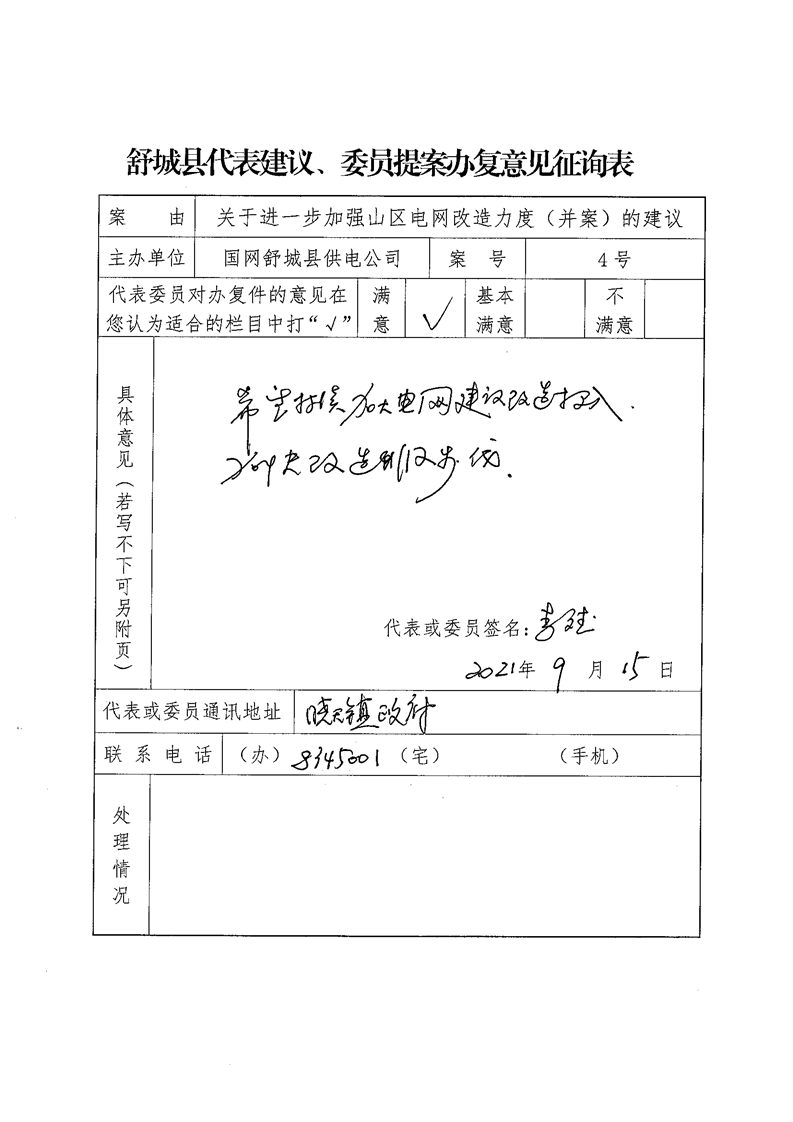 舒城县代表建议、委员提案办复意见征询表
案 由 关于进一步加强山区电网改造力度（并案）的建议
主办单位 国网舒城县供电公司 案 号 4号
代表委员对办复件的意见在您认为适合的栏目中打“√” 满意 √ 基本满意 不满意
具体意见（若写不下可另附页）
希望持续加大电网建议改造投入.
加快改造升级步伐.
代表或委员签名:
2021年 9 月 15 日
代表或委员通讯地址 晓天镇政府
联系电话 （办）8345001（宅） （手机）
处理情况